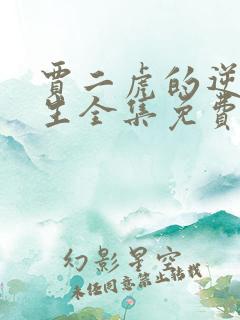 賈二虎的逆
生全集免費
幻影星空
未经同意禁止转载